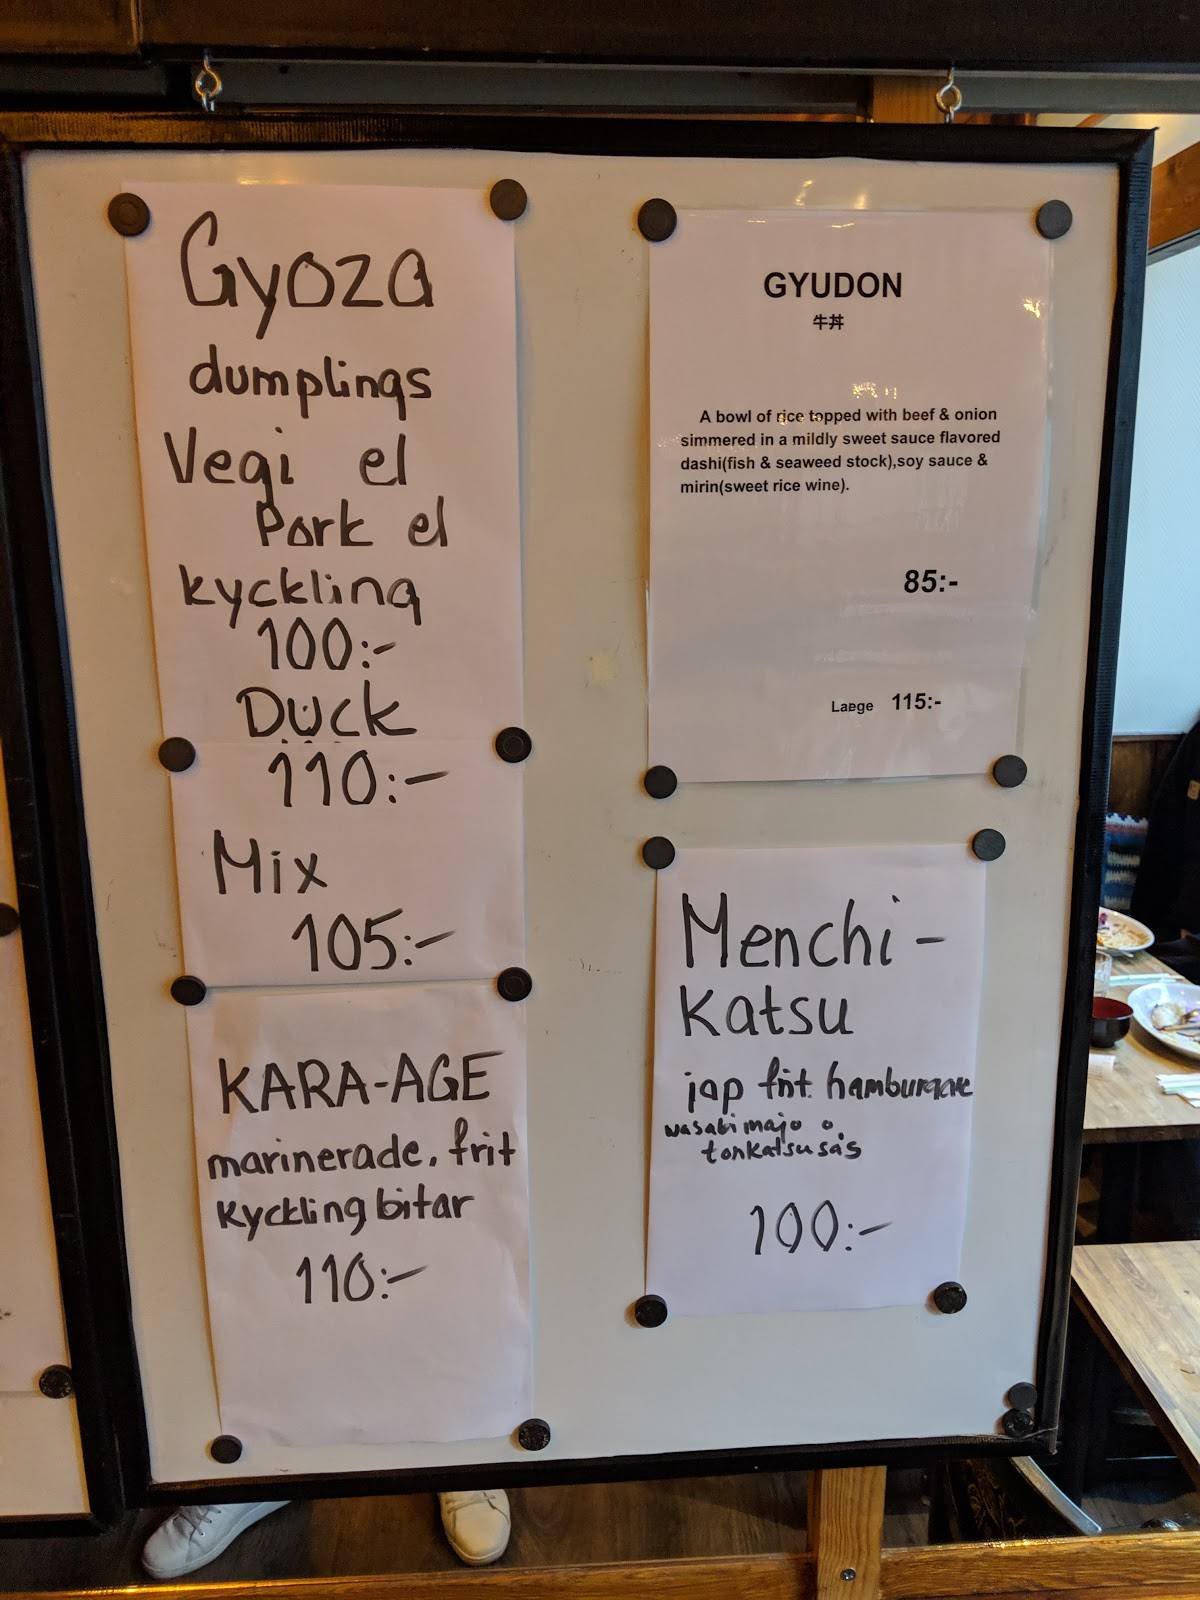 Gyoza
dumplings
Vegi el
Pork el
kyckling
100:-
Duck
110:-
Mix
105:-
KARA-AGE
marinerade, frit
kyckling bitar
110:-
GYUDON
牛丼
A bowl of rice topped with beef & onion
simmered in a mildly sweet sauce flavored
dashi(fish & seaweed stock),soy sauce &
mirin(sweet rice wine).
85:-
Laege 115:-
Menchi-
Katsu
jap frit. hamburgare
wasabi majo o.
tonkatsu sås
100:-